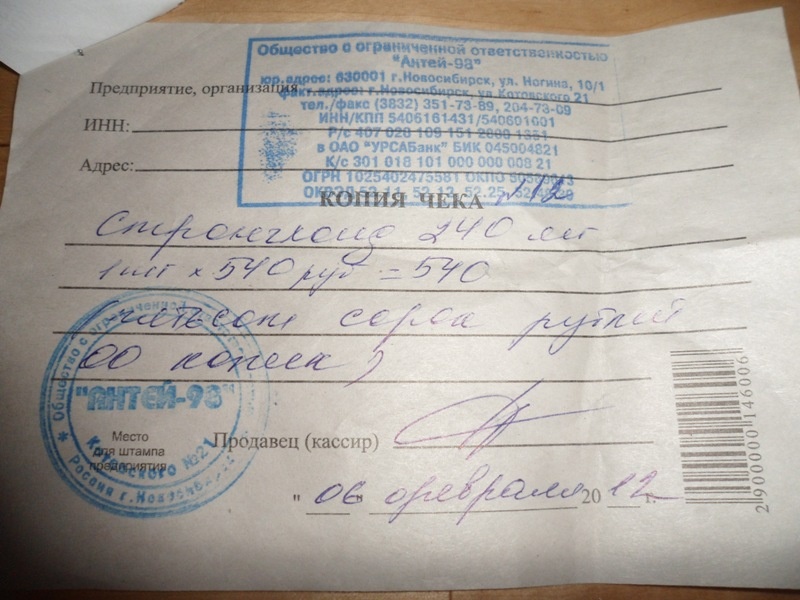 Общество с ограниченной ответственностью
"Антей-98"
юр.адрес: 630001 г.Новосибирск, ул. Ногина, 10/1
факт.адрес: г.Новосибирск, ул.Котовского 21
тел./факс (3832) 351-73-89, 204-73-09
ИНН/КПП 5406161431/540601001
Р/с 407 028 109 151 2000 1351
в ОАО "УРСАБанк" БИК 045004821
К/с 301 018 101 000 000 008 21
ОГРН 1025402475581 ОКПО
ОКВЭД 52.11, 52.12, 52.25,
Предприятие, организация
ИНН:
Адрес:
КОПИЯ ЧЕКА
240 мл
1 шт х 540 руб = 540
пятьсот сорок рублей
00 копеек)
Общество с ограниченной
"АНТЕЙ-98"
Котовского №21
Россия г.Новосибирск
Место
для штампа
предприятия
Продавец (кассир)
"06" февраля 2012 г.
2 900000 146006